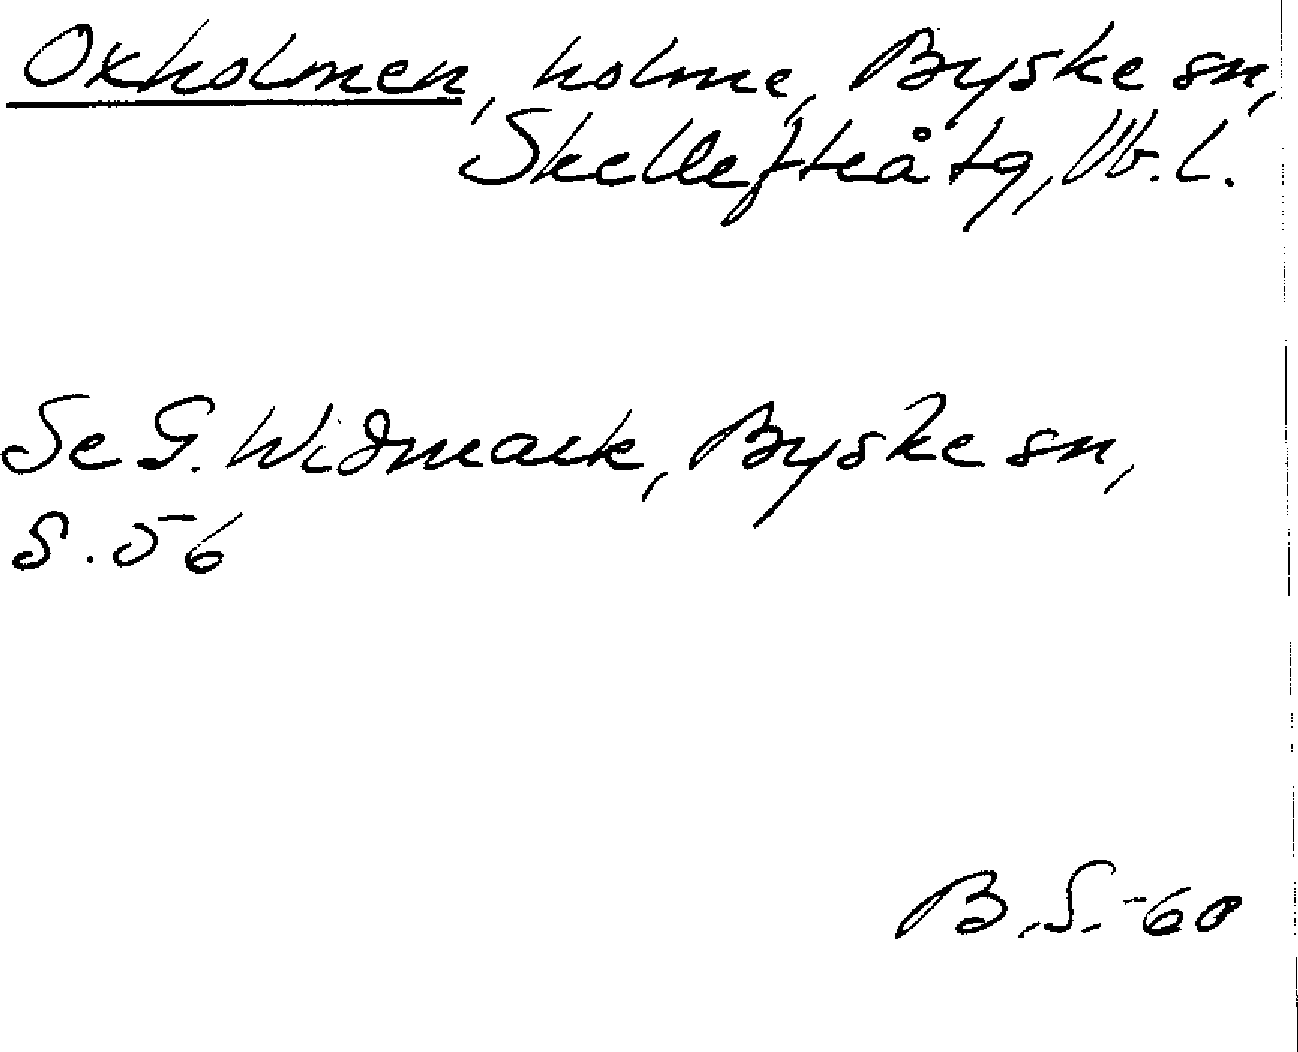 Oxholmen, holme, Byske sn,
Skellefteå tg, Vb. l.
Se G. Widmark, Byske sn,
S. 56
B.S.-60